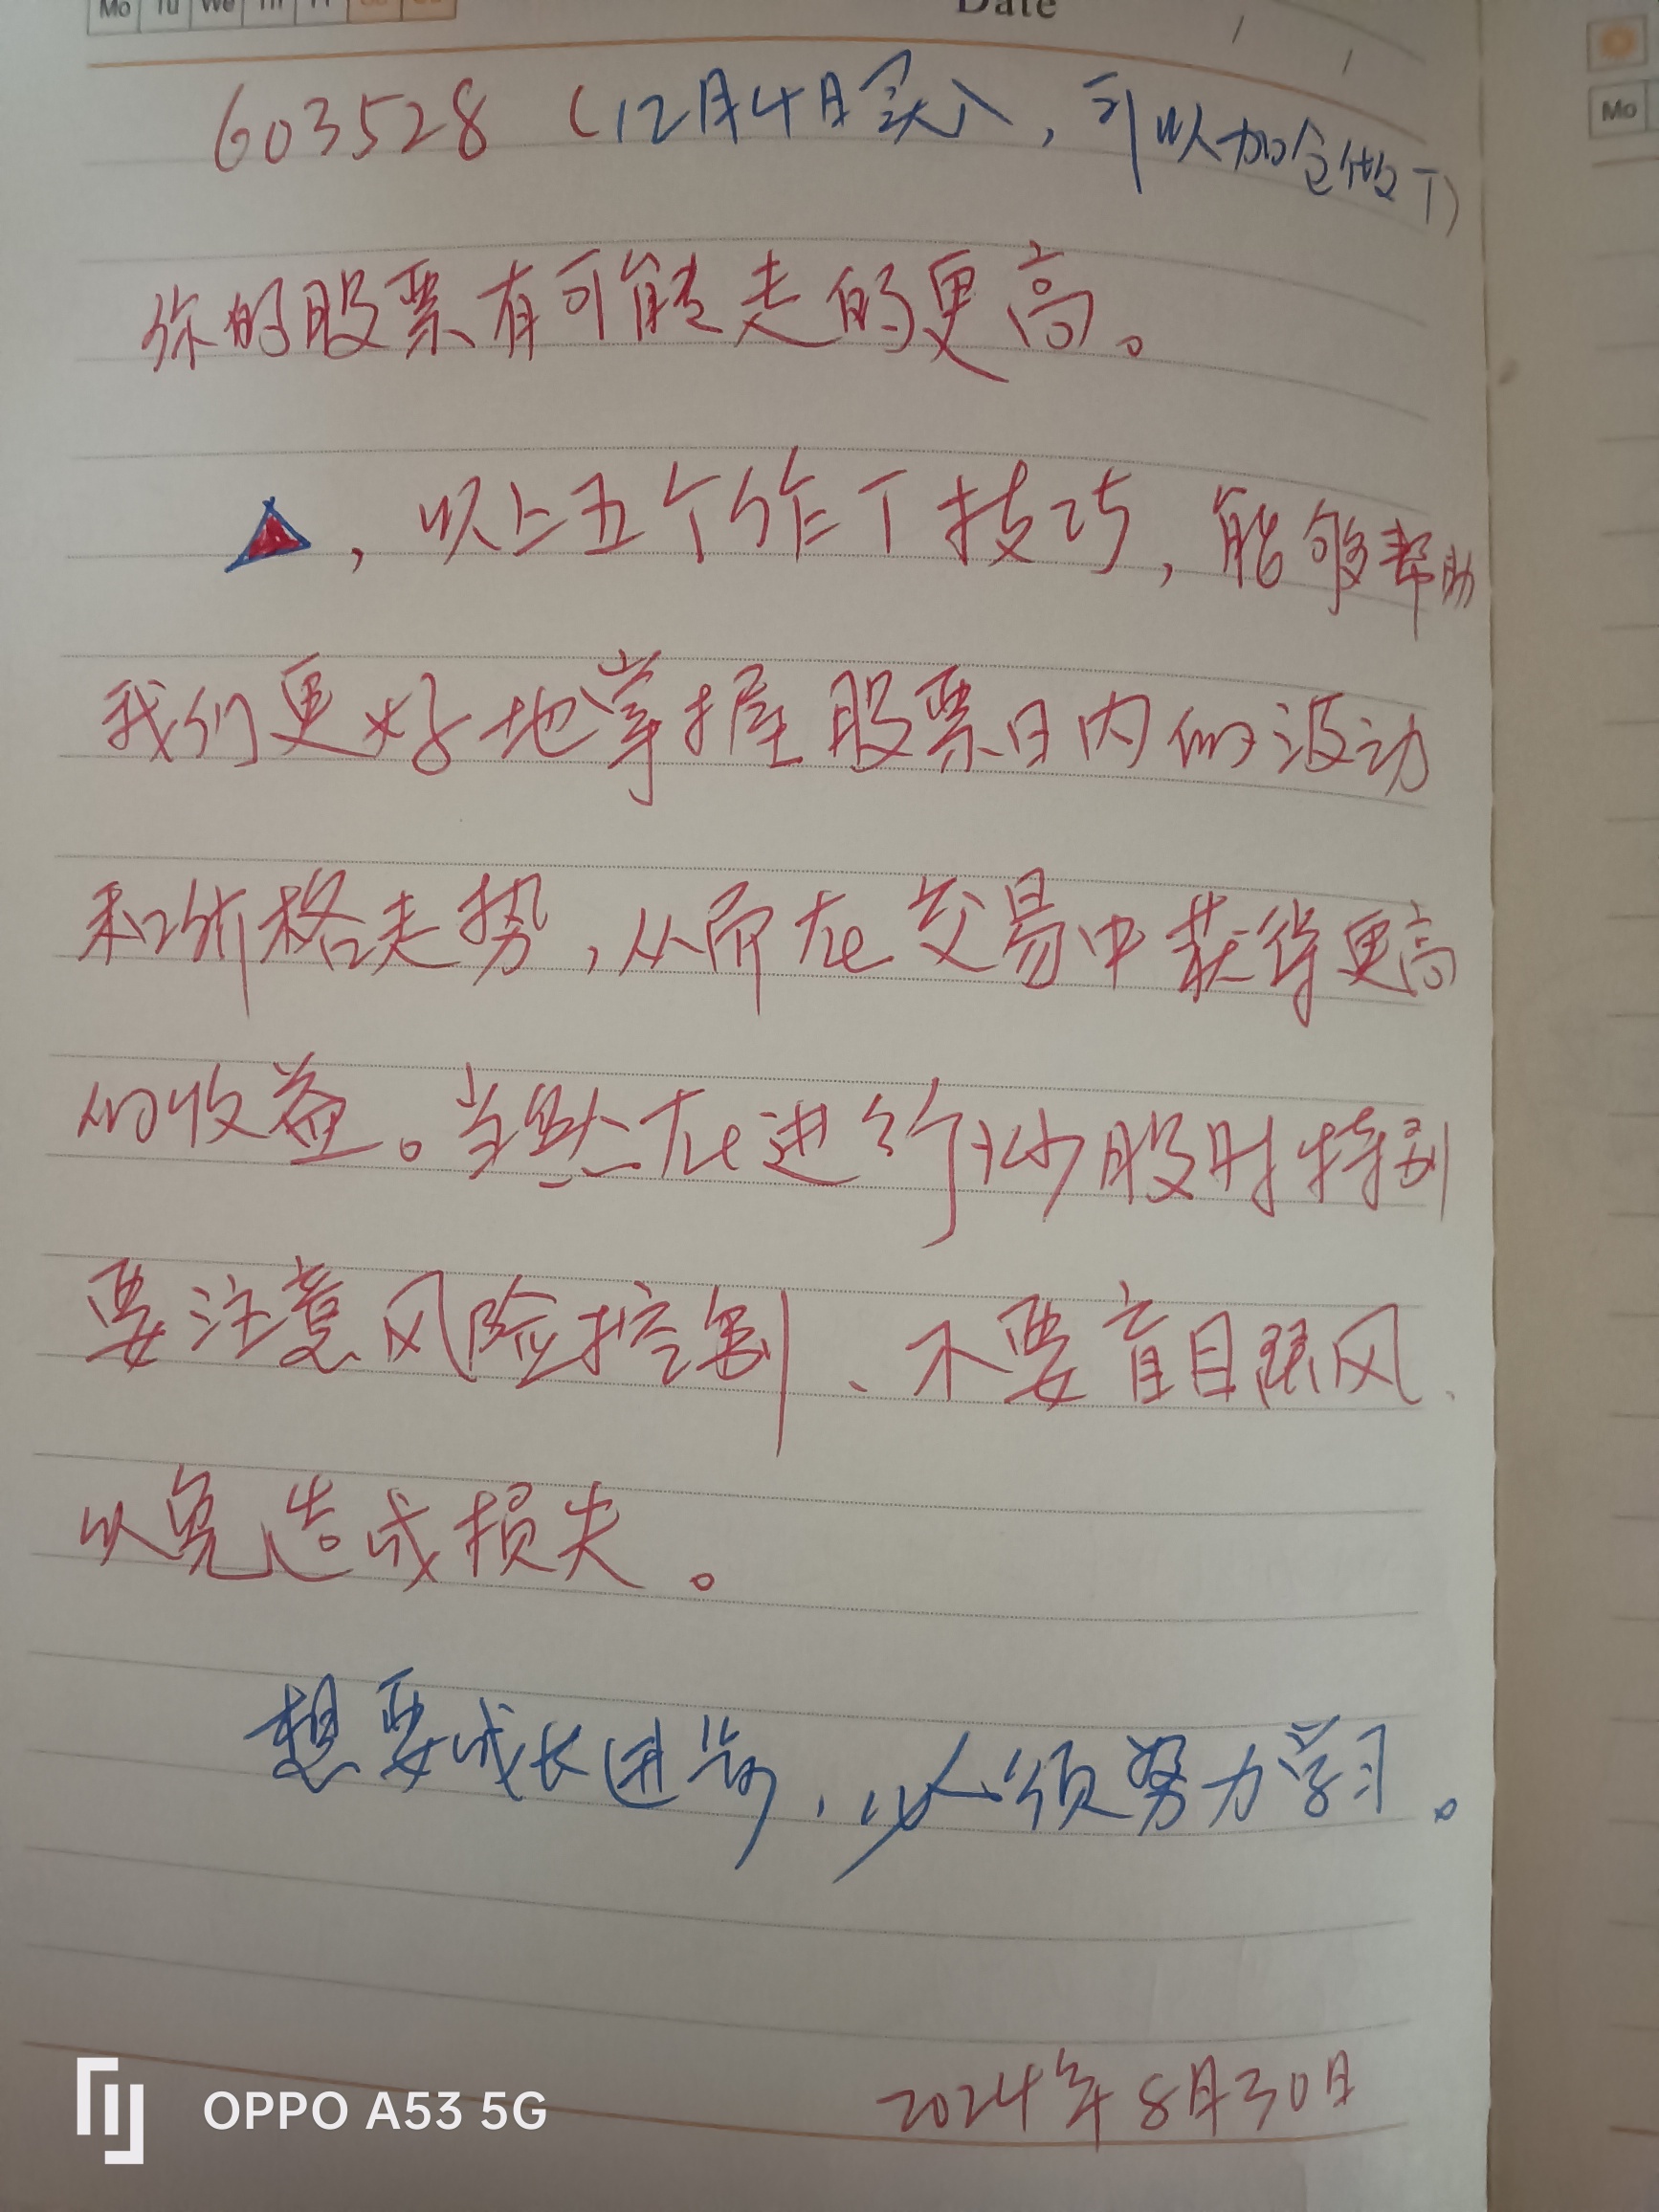 Mo Tu We Th Fr Sa Su
Date
603528 （12月4日买入，可以加仓做T）
你的股票有可能走的更高。
，以上五个作T技巧，能够帮助
我们更好地掌握股票日内的波动
和价格走势，从而在交易中获得更高
的收益。当然在进行炒股时特别
要注意风险控制、不要盲目跟风、
以免造成损失。
想要成长进步，必须努力学习。
2024年8月30日
OPPO A53 5G
Mo